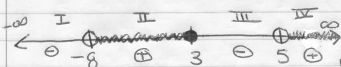 -∞ I II III IV ∞
⊖ ⊕ ⊖ ⊕
-8 3 5